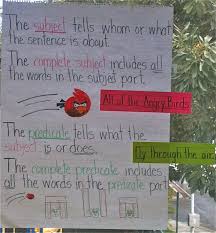 The subject tells whom or what
the sentence is about.
The complete subject includes all
the words in the subject part.
All of the Angry Birds
The predicate tells what the
subject is or does.
fly through the air.
The complete predicate includes
all the words in the predicate part